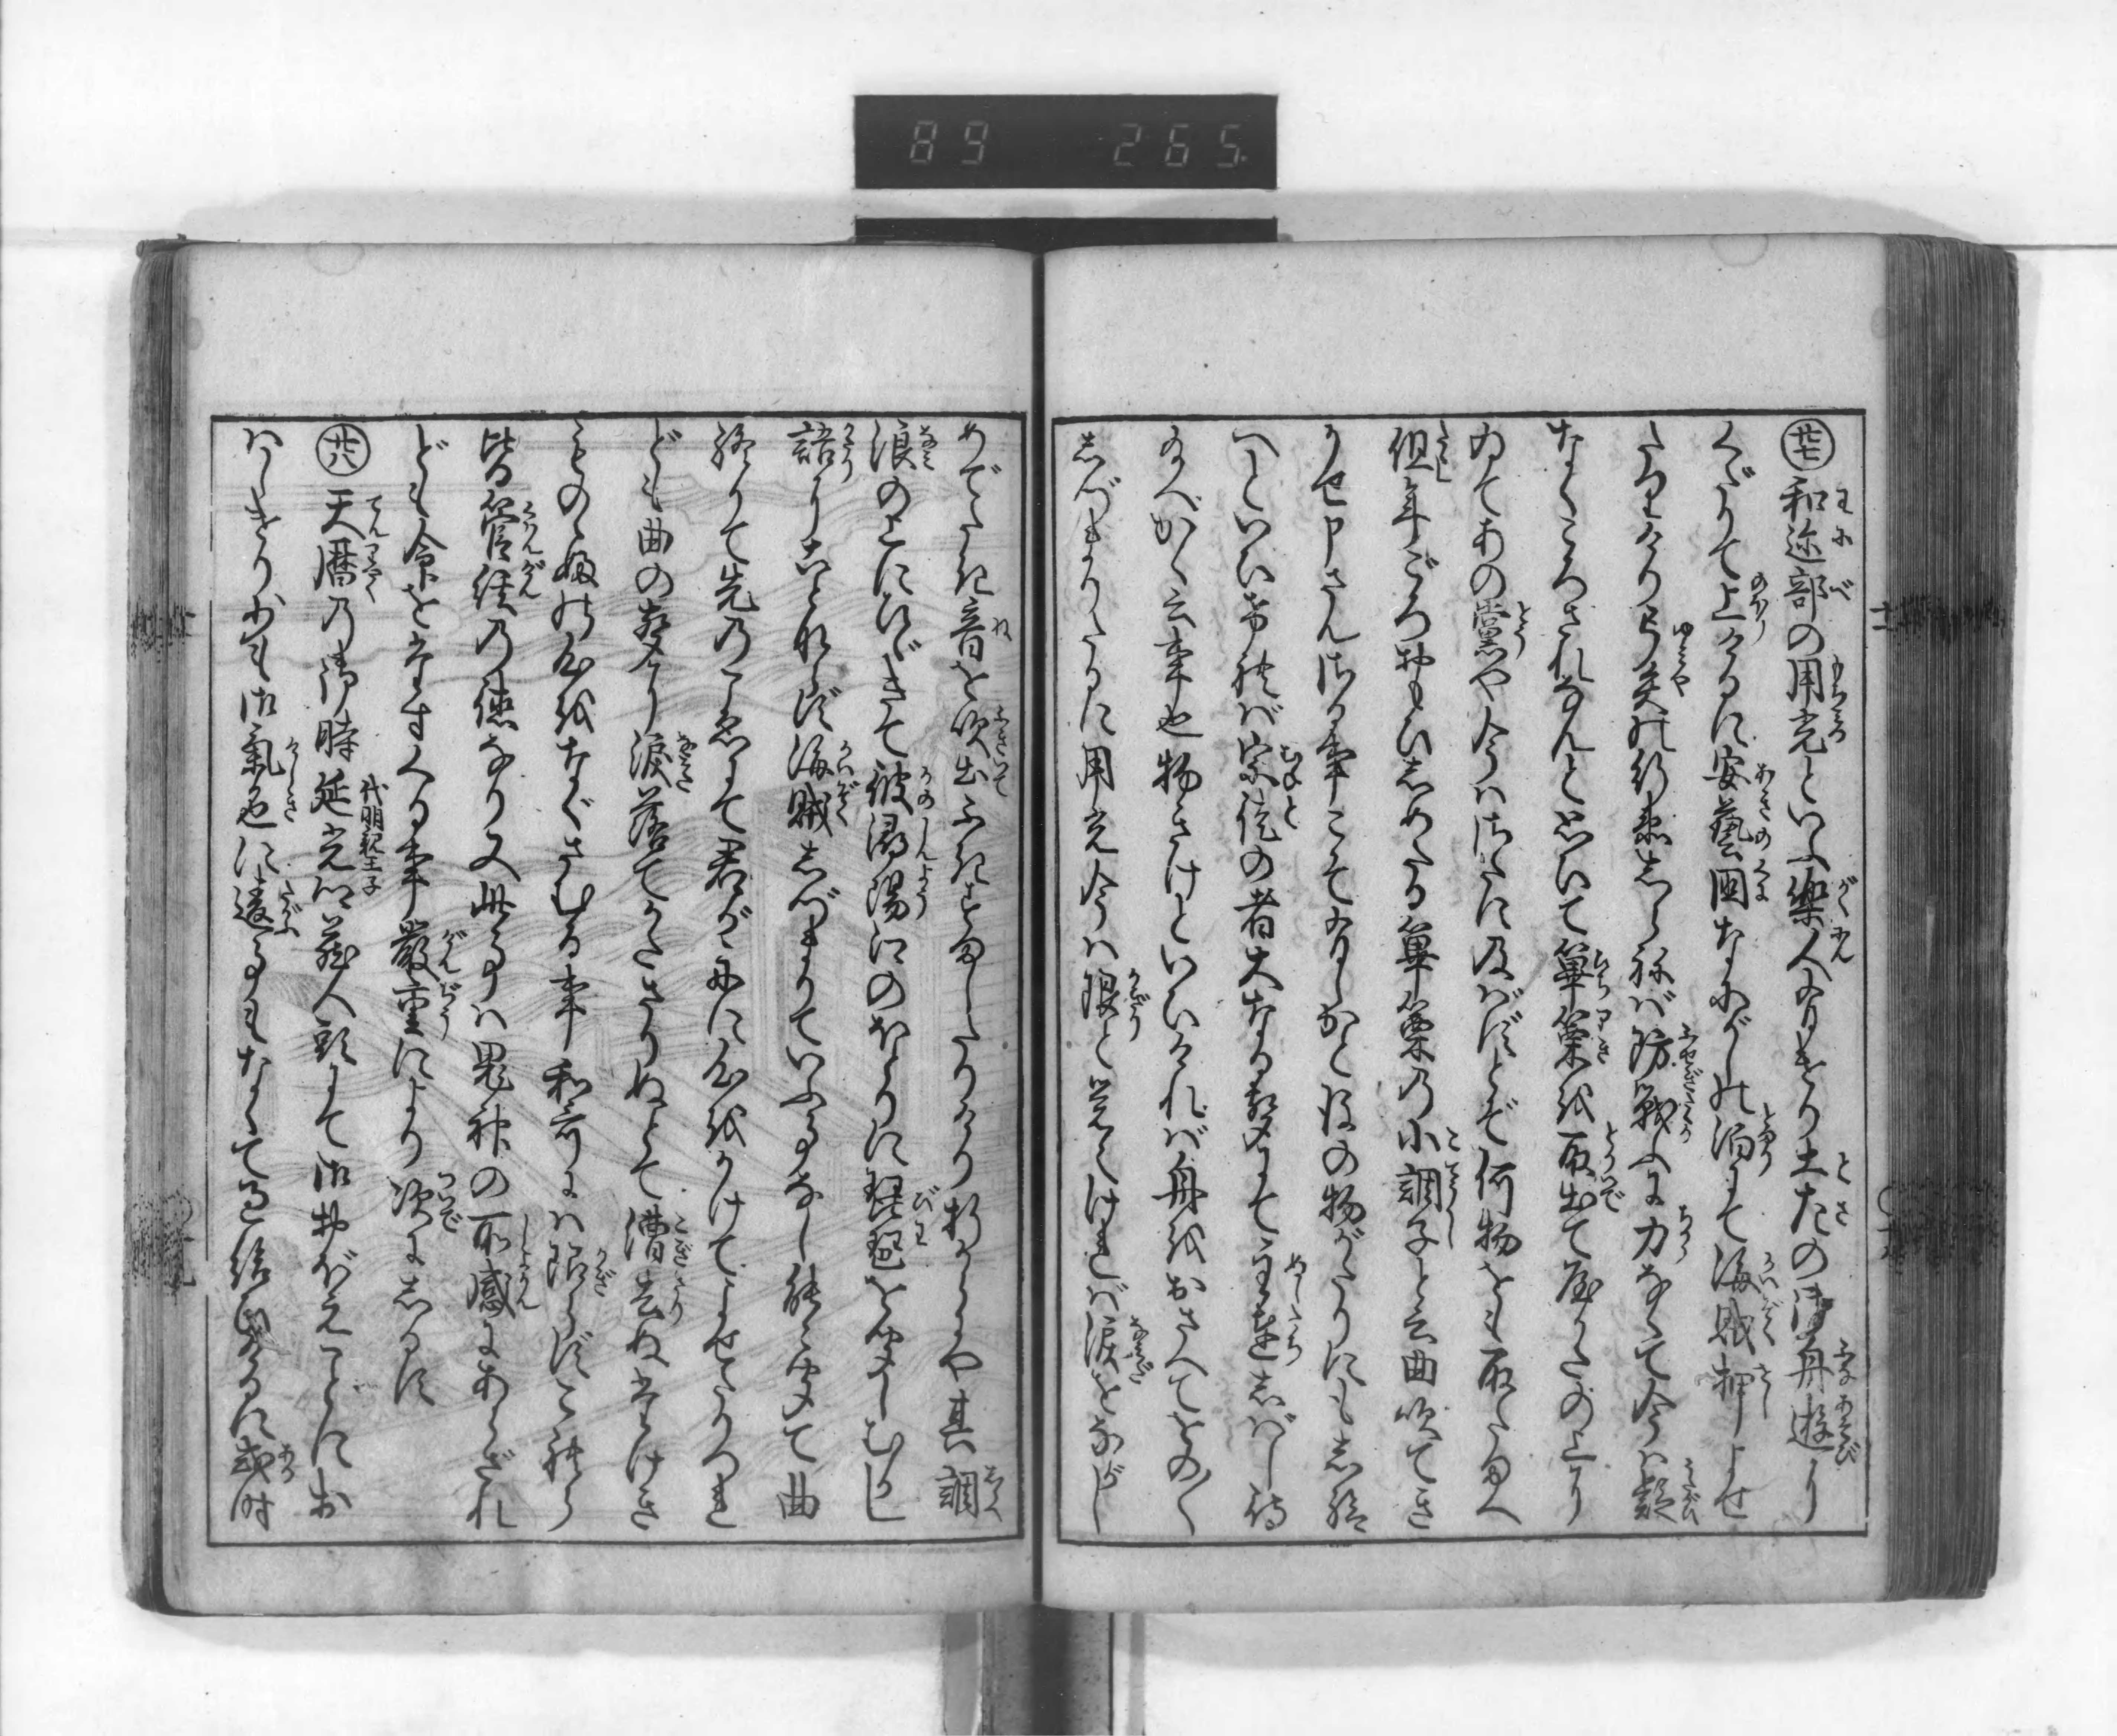 89 265
廿七 和邇部の用光といふ楽人有けり土左の御舟遊に
くだりて上けるに安藝国なにがしの泊にて海賊押よせ
たりけり弓矢の行衛しらねば防戦ふに力なくて今は疑
なくころされなんと思ひて篳篥を取出て屋かたの上に
ゐてあの党や今はさたに及ばずとぞ何物をも取たまへ
但年ごろおもひしめたる篳篥の小調子と云曲吹てき
かせ申さんさる事こそ有しかと後の物がたりにもし給
へといひければ宗徒の者大なる声にて主達しばし待
給へかく云事也物きけといひければ舟をおさへてをの〱
しづまりたるに用光今は限と覚えければ涙をながし
めでたき音を吹出ふきすましたりけり折からにや其調
浪の上にひゞきて彼潯陽江のほとりに琵琶を聞しむかし
語りにことならず海賊しづまりていふ事なし能々聞て曲
終りて先のこゑにて君が舟に心をかけてよせたりつれ
ども曲の声に涙落てかたさりぬとて漕去ぬたけき
ものゝふの心をなぐさむる事和哥には限らずこれら
皆管絃の徳なり又此事は鬼神の所感にあらざれ
ども命をたすくる事厳重により次にしるす
廿八 天暦の御時延光卿代明親王子蔵人頭にて御おぼえことにお
はしけり少も御気色に違事もなくて過給けるに或時